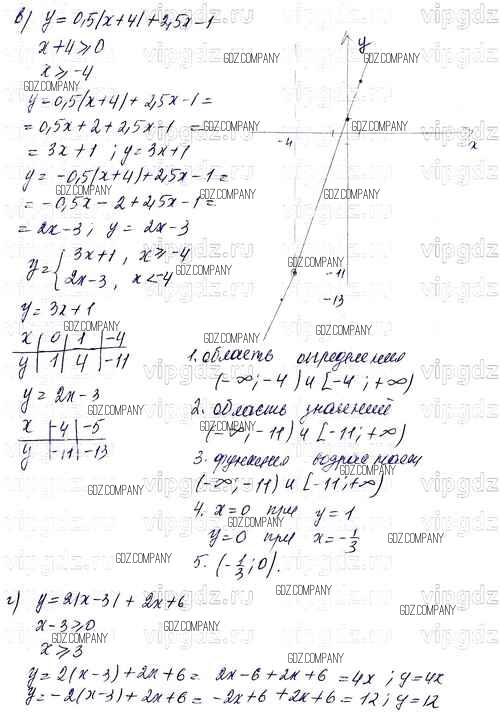 в) y = 0,5|x+4| + 2,5x-1
x+4 ≥ 0
x ≥ -4
y = 0,5(x+4) + 2,5x-1 =
= 0,5x+2+2,5x-1 =
= 3x+1 ; y = 3x+1
y = -0,5(x+4)+2,5x-1 =
= -0,5x-2+2,5x-1 =
= 2x-3; y = 2x-3
y = { 3x+1, x ≥ -4
2x-3, x < -4
y = 3x+1
x | 0 | 1 | -4
y | 1 | 4 | -11
y = 2x-3
x | -4 | -5
y | -11 | -13
y
1
-4
x
-11
-13
1. область определения
(-∞; -4) и [-4; +∞)
2. область значений
(-∞; -11) и [-11; +∞)
3. функция возрастает
(-∞; -11) и [-11; +∞)
4. x = 0 при y = 1
y = 0 при x = -1/3
5. (-1/3; 0).
г) y = 2|x-3| + 2x+6
x-3 ≥ 0
x ≥ 3
y = 2(x-3)+2x+6 = 2x-6+2x+6 = 4x ; y = 4x
y = -2(x-3)+2x+6 = -2x+6+2x+6 = 12; y = 12
GDZ.COMPANY
vipgdz.ru